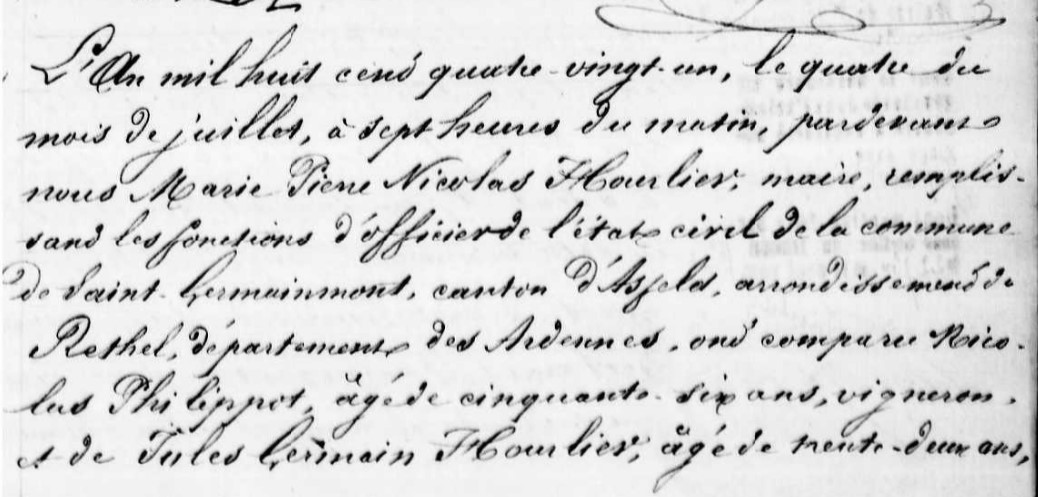 L'An mil huit cent quatre-vingt-un, le quatre du
mois de juillet, à sept heures du matin, pardevant
nous Marie Pierre Nicolas Hourlier, maire, remplis-
sant les fonctions d'officier de l'état civil de la commune
de Saint-Germainmont, canton d'Asfeld, arrondissement de
Rethel, département des Ardennes, ont comparu Nico-
las Philippot, âgé de cinquante-six ans, vigneron,
et de Jules Germain Hourlier, âgé de trente-deux ans,